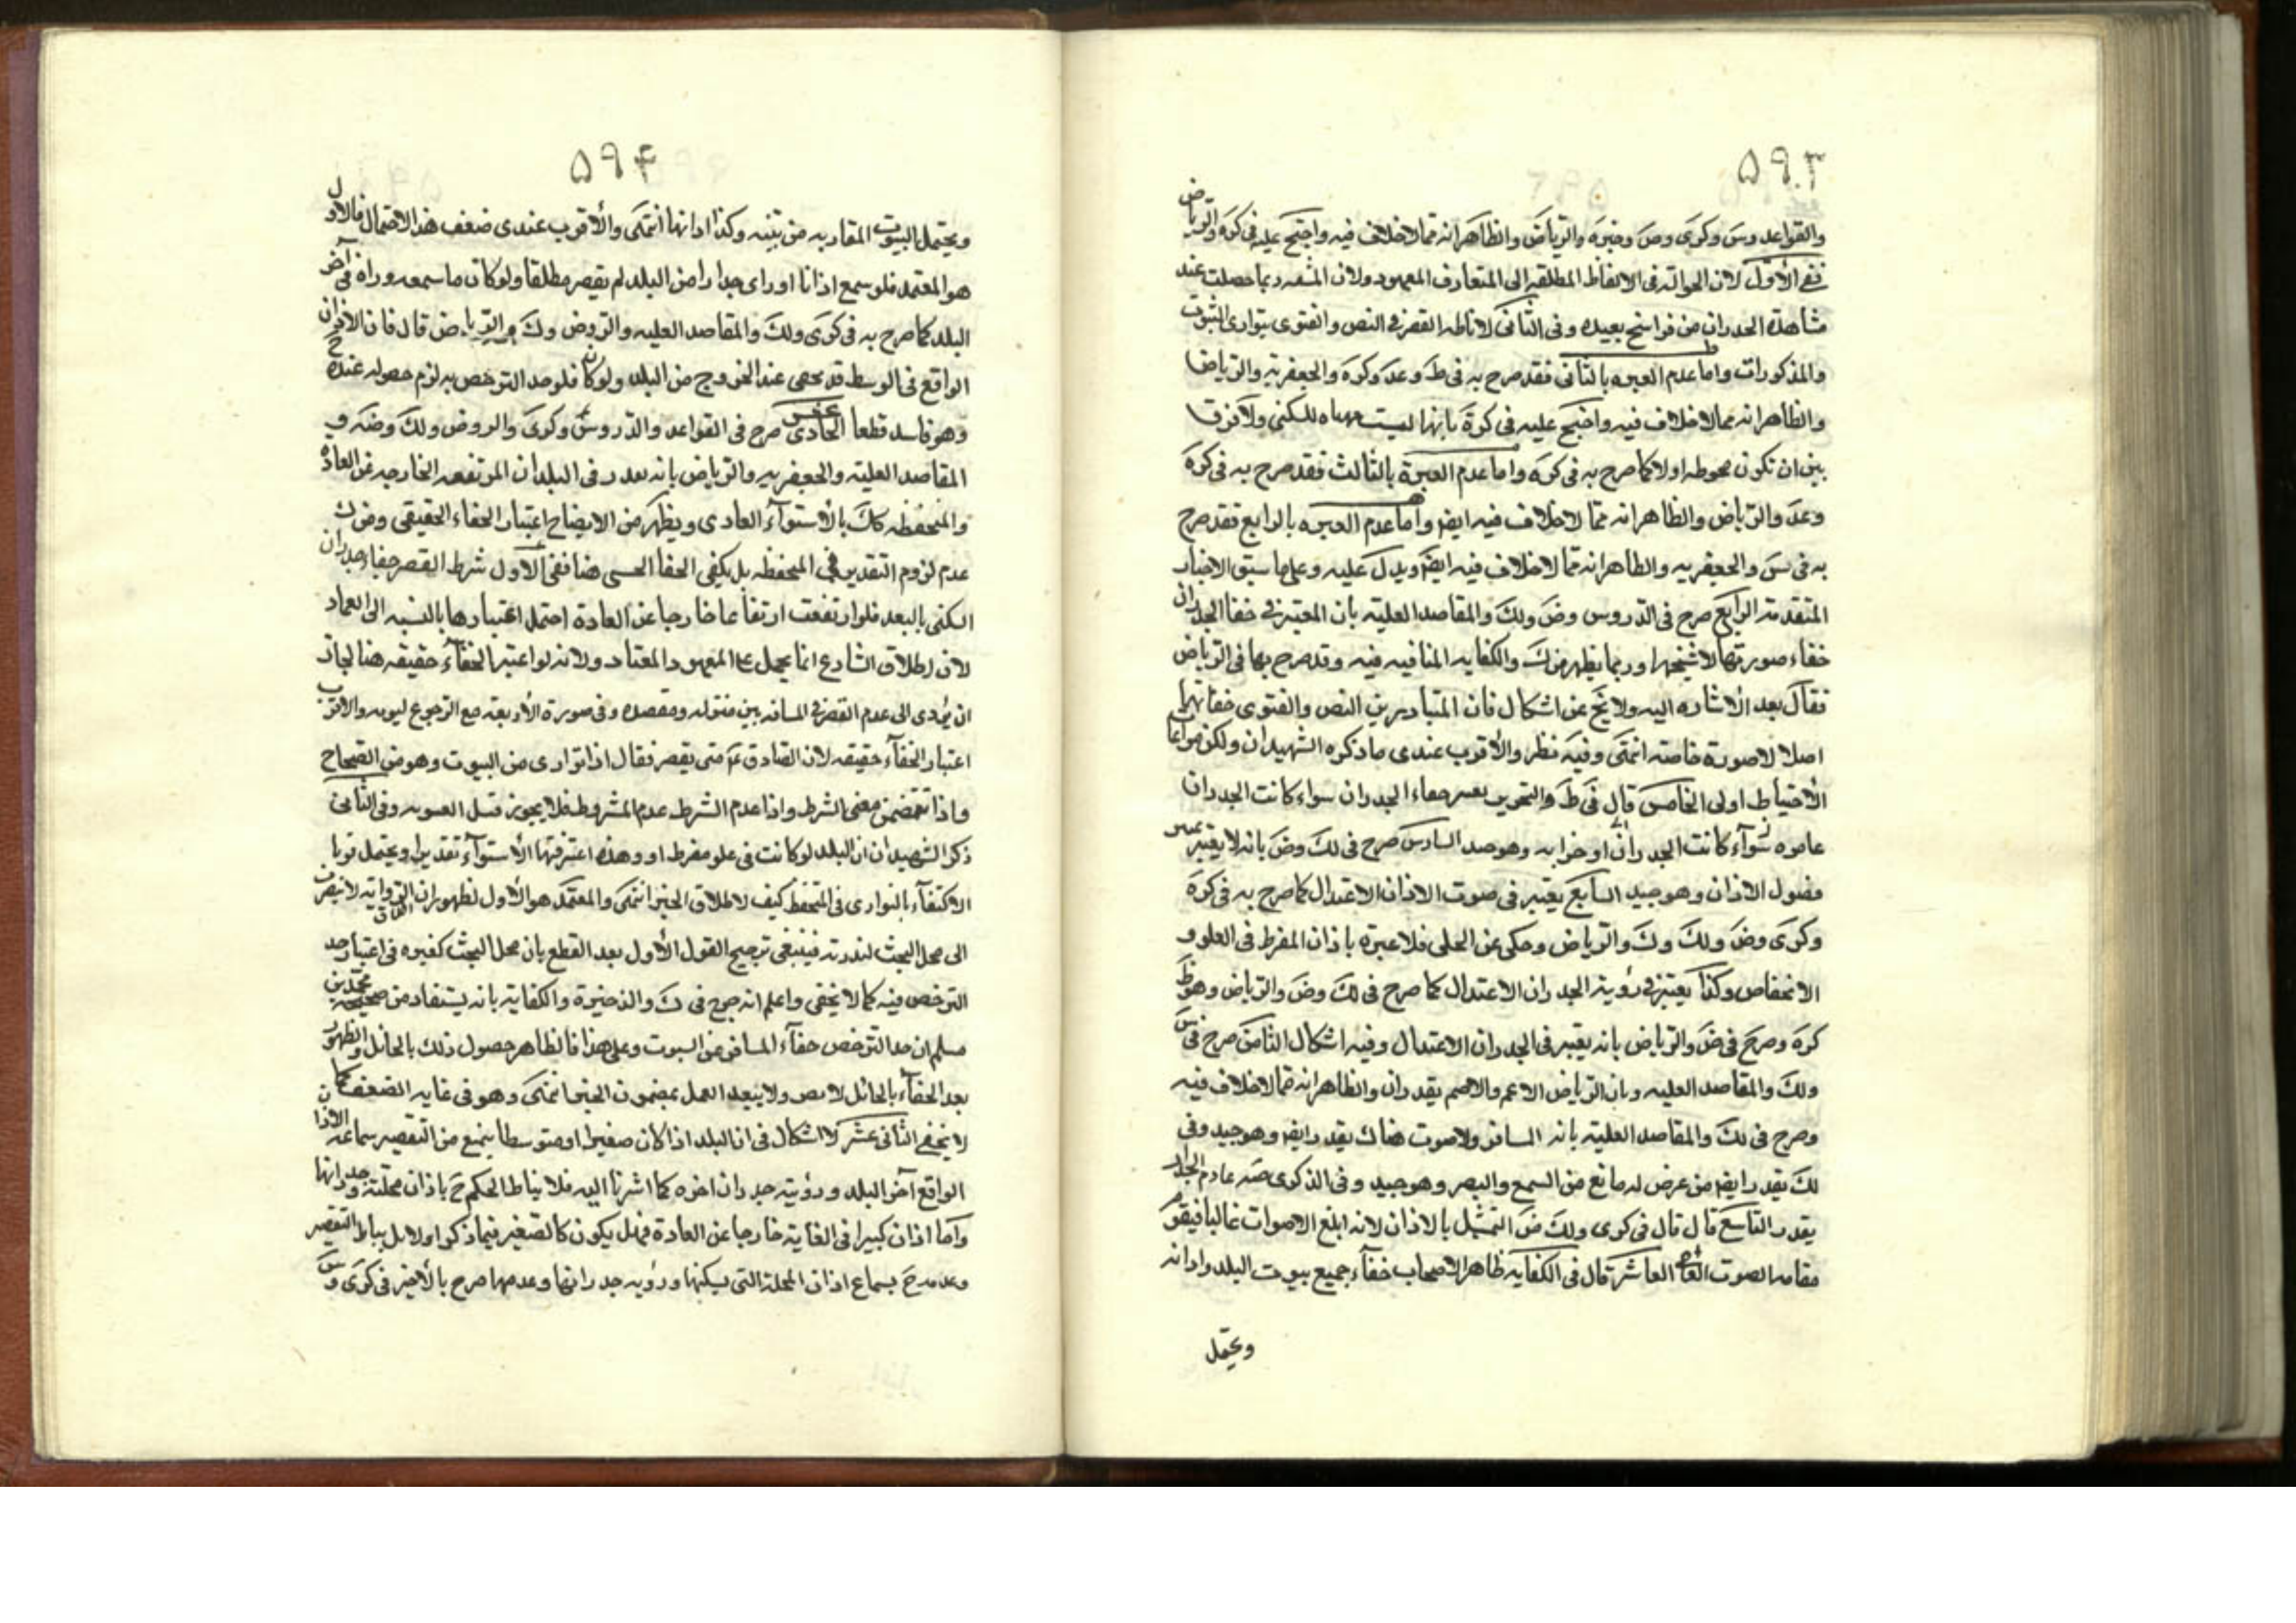 ۵۹۳
والقواعد وس وكرى وض وخيرة والرياض والظاهر انه مما لا خلاف فيه واحتج عليه فى كرة والرياض
ففى الأول لان الحوالة فى الالفاظ المطلقة الى المتعارف المعهود ولان المشقة ربما حصلت عند
مشاهدة الجدران من فراسخ بعيده وفى الثانى لاناطه القصر فى النص والفتوى بتوارى البيوت
والمذكورات واما عدم العبرة بالثانى فقد صرح به فى ط وعد وكره والجعفريه والرياض
والظاهر انه مما لا خلاف فيه واحتج عليه فى كرة بانها ليست مهياه للسكنى ولا فرق
بين ان تكون محوطه اولا كما صرح به فى كره واما عدم العبرة بالثالث فقد صرح به فى كرة
وعد والرياض والظاهر انه مما لا خلاف فيه ايضا واما عدم العبره بالرابع فقد صرح
به فى س والجعفريه والظاهر انه مما لا خلاف فيه ايضا ويدل عليه وعلى ما سبق الاخبار
المتقدمة الرابع صرح فى الدروس وض ولك والمقاصد العلية بان المعتبر فى خفا الجدران
خفاء صورتها لا شبحها وربما يظهر من ك والكفايه المنافيه فيه وقد صرح بها فى الرياض
فقال بعد الاشاره اليه ولا يخ عن اشكال فان المتبادر من النص والفتوى خفائها
اصلا لا صورة خاصة انتهى وفيه نظر والاقرب عندى ما ذكره الشهيدان ولكن مراعاة
الاحتياط اولى الخامس قال فى ط والتحرير خفاء الجدران سواء كانت الجدران
عامره سواء كانت الجدران او خرابه وهو السادس صرح فى لك وض بانه لا يعتبر
فصول الاذان وهو جيد السابع يعتبر فى صوت الاذان الاعتدال كما صرح به فى كرة
وكرى وض ولك وك والرياض وحكى عن الحلى فلا عبرة باذان المفرط فى العلو و
الانخفاض وكذا يعتبر فى رؤية الجدران الاعتدال كما صرح فى لك وض والرياض وهو ظ
كرة وصرح فى ض والرياض بانه يعتبر فى الجدران الاعتدال وفيه اشكال الثامن صرح فى س
ولك والمقاصد العليه وبان الرياض الاعمى والاصم يقدران والظاهر انه مما لا خلاف فيه
وصرح فى لك والمقاصد العلية بانه المسافر ولا صوت هناك يقدر ايضا وهو جيد وفى
لك يقدر ايضا من عرض له مانع من السمع والبصر وهو جيد وفى الذكرى عادم الجدار
يقدر التاسع قال قال فى كرى ولك ض التمثيل بالاذان لانه ابلغ الاصوات غالبا فيقوم
مقامه الصوت العاشر قال فى الكفايه ظاهر الاصحاب خفاء جميع بيوت البلد واذانه
ويحتمل
۵۹۴
ويحتمل البيوت المقاربه من بيته وكذا اذانها انتهى والاقرب عندى ضعف هذا الاحتمال فالاول
هو المعتمد فلو سمع اذانا او راى جدارا من البلد لم يقصر مطلقا ولو كان ما سمعه وراه فى آخر
البلد كما صرح به فى كرى ولك والمقاصد العليه والروض وك والرياض قال فان الاذان
الواقع فى الوسط قد يخفى عند الخروج من البلد ولو كان فلو حد الترخص به لزم حصوله عنده
وهو فاسد قطعا الحادى عشر صرح فى القواعد والدروس وكرى والروض ولك وضه و
المقاصد العلية والجعفريه والرياض بانه يقدر فى البلدان المرتفعه الخارجه عن العادة
والمنخفظه كك بالاستواء العادى ويظهر من الايضاح اعتبار الخفاء الحقيقى ومن ك
عدم لزوم التقدير فى المنخفظه بل يكفى الخفا الحسى هنا ففى الاول شرط القصر خفاء جدران
السكنى بالبعد فلو ارتفعت ارتفاعا خارجا عن العادة احتمل اعتبارها بالنسبه الى المعتاد
لان اطلاق الشارع انما يحمل على المعهود المعتاد ولانه لو اعتبر الخفاء حقيقه هنا لجاز
ان يؤدى الى عدم القصر فى المسافه بين منزله ومقصده وفى صورة الأربعه مع الرجوع ليومه والاقرب
اعتبار الخفاء حقيقه لان الصادق ع متى يقصر فقال اذا توارى من البيوت وهو من الصحاح
واذا تتضمن معنى الشرط واذا عدم الشرط عدم المشروط فلا يجوز وفى الثانى
ذكر الشهيدان ان البلد لو كانت فى علو مفرط او وهده اعتبر فيها الاستواء تقديرا ويحتمل قويا
الاكتفاء بالتوارى فى المنخفظ كيف لاطلاق الخبر انتهى والمعتمد هو الاول لظهور ان الرواية لا تنصرف
الى محل البحث لندرته فينبغى ترجيح القول الأول بعد القطع بان محل البحث كغيره فى اعتبار حد
الترخص فيه كما لا يخفى واعلم انه صرح فى ك والذخيرة والكفاية بانه يستفاد من صحيحة محمد بن
مسلم ان حد الترخص خفاء المسافر عن البيوت وعلى هذا فالظاهر حصول ذلك بالحائل والظهور
بعد الخفاء بالحائل لا يضر ولا يبعد العمل بمضمون الخبر انتهى وهو فى غايه الضعف كما
لا يخفى الثانى عشر لا اشكال فى ان البلد اذا كان صغيرا او متوسطا يمنع من التقصير سماعه الاذان
الواقع آخر البلد ورؤية جدران اخره كما اشرنا اليه فلا يناط الحكم ح باذان محلته وجدرانها
واما اذا كان كبيرا فى الغاية خارجا عن العادة فهل يكون كالصغير فيما ذكر اولا بل يناط التقصير
وعدمه ح بسماع اذان المحلة التى يسكنها ورؤيه جدرانها وعدمها صرح بالأخير فى كرى وس